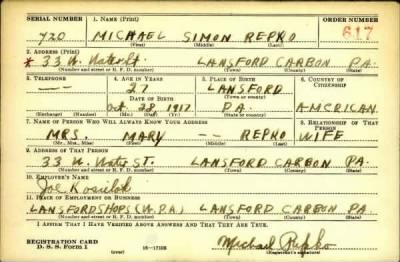 SERIAL NUMBER 1. NAME (Print) ORDER NUMBER
720 MICHAEL SIMON REPKO 617
(First) (Middle) (Last)
2. ADDRESS (Print)
* 33 W. Water St. LANSFORD CARBON PA.
(Number and street or R. F. D. number) (Town) (County) (State)
3. TELEPHONE 4. AGE IN YEARS 5. PLACE OF BIRTH 6. COUNTRY OF CITIZENSHIP
—— 27 LANSFORD
DATE OF BIRTH (Town or county)
Oct. 28, 1917 PA. AMERICAN
(Exchange) (Number) (Mo.) (Day) (Yr.) (State or country)
7. NAME OF PERSON WHO WILL ALWAYS KNOW YOUR ADDRESS 8. RELATIONSHIP OF THAT PERSON
MRS. MARY —— REPKO WIFE
(Mr., Mrs., Miss) (First) (Middle) (Last)
9. ADDRESS OF THAT PERSON
33 W. Water ST. LANSFORD CARBON PA.
(Number and street or R. F. D. number) (Town) (County) (State)
10. EMPLOYER'S NAME
Joe
11. PLACE OF EMPLOYMENT OR BUSINESS
LANSFORD SHOPS (W.P.A.) LANSFORD CARBON PA
(Number and street or R. F. D. number) (Town) (County) (State)
I AFFIRM THAT I HAVE VERIFIED ABOVE ANSWERS AND THAT THEY ARE TRUE.
REGISTRATION CARD
D. S. S. Form 1 (over) Michael Repko
(Registrant's signature)